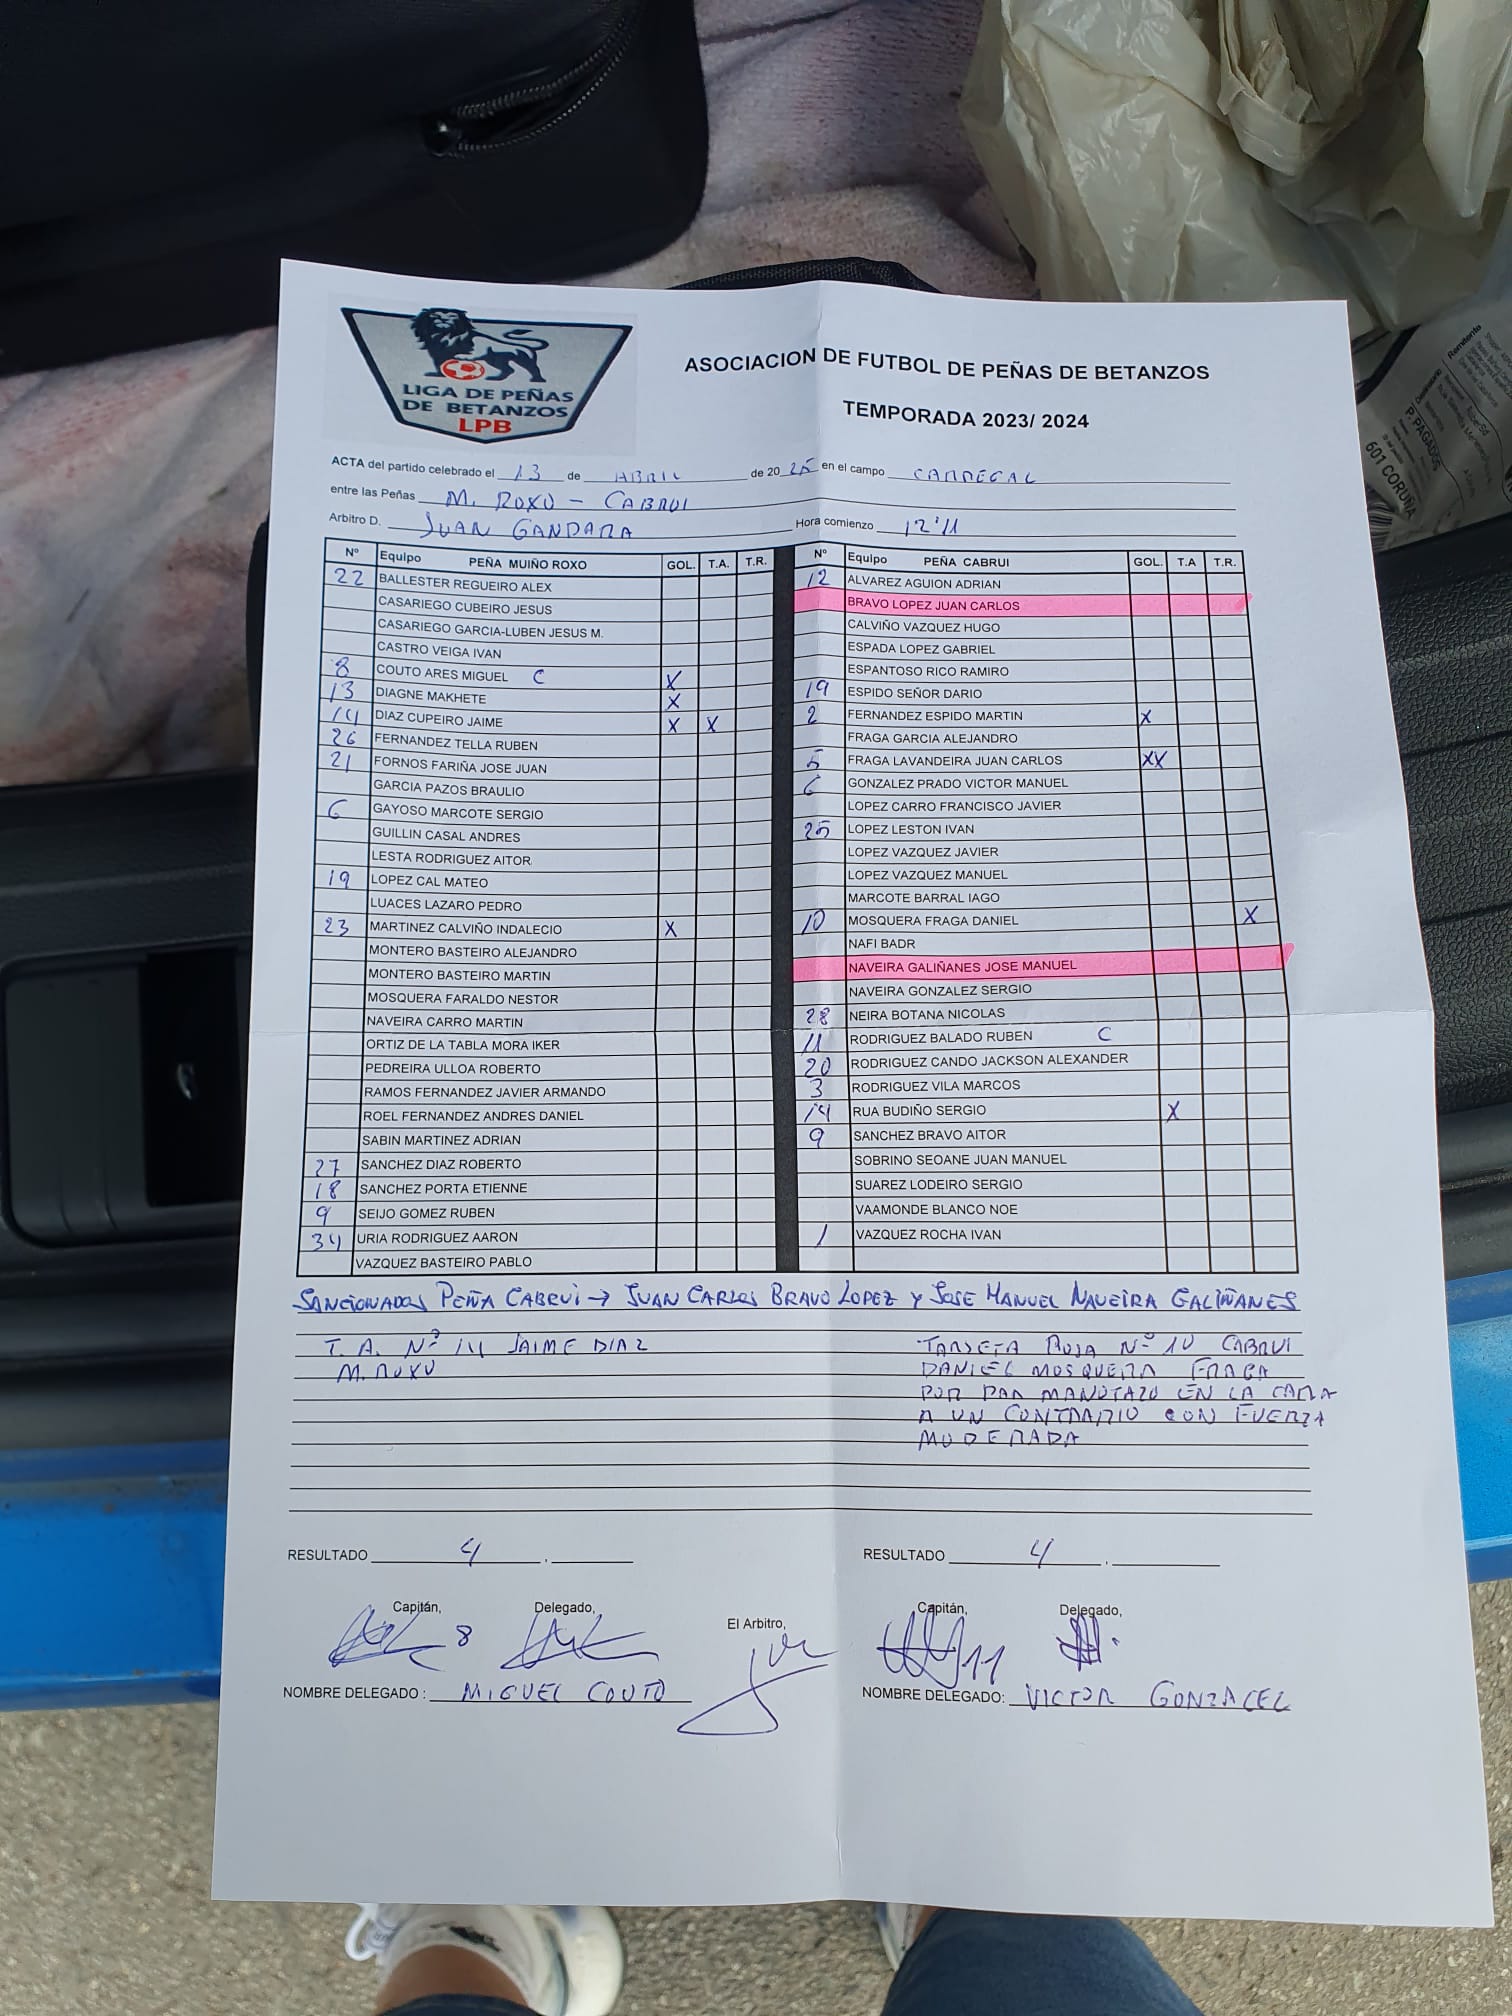 LIGA DE PEÑAS
DE BETANZOS
LPB
ASOCIACION DE FUTBOL DE PEÑAS DE BETANZOS
TEMPORADA 2023/ 2024
ACTA del partido celebrado el 13 de ABRIL de 20 25 en el campo CARREGAL
entre las Peñas M. ROXO - CABRUI
Arbitro D. JUAN GANDARA Hora comienzo 12'11
Nº Equipo PEÑA MUIÑO ROXO GOL. T.A. T.R.
22 BALLESTER REGUEIRO ALEX
CASARIEGO CUBEIRO JESUS
CASARIEGO GARCIA-LUBEN JESUS M.
CASTRO VEIGA IVAN
8 COUTO ARES MIGUEL C X
13 DIAGNE MAKHETE X
14 DIAZ CUPEIRO JAIME X X
26 FERNANDEZ TELLA RUBEN
21 FORNOS FARIÑA JOSE JUAN
GARCIA PAZOS BRAULIO
6 GAYOSO MARCOTE SERGIO
GUILLIN CASAL ANDRES
LESTA RODRIGUEZ AITOR
19 LOPEZ CAL MATEO
LUACES LAZARO PEDRO
23 MARTINEZ CALVIÑO INDALECIO X
MONTERO BASTEIRO ALEJANDRO
MONTERO BASTEIRO MARTIN
MOSQUERA FARALDO NESTOR
NAVEIRA CARRO MARTIN
ORTIZ DE LA TABLA MORA IKER
PEDREIRA ULLOA ROBERTO
RAMOS FERNANDEZ JAVIER ARMANDO
ROEL FERNANDEZ ANDRES DANIEL
SABIN MARTINEZ ADRIAN
27 SANCHEZ DIAZ ROBERTO
18 SANCHEZ PORTA ETIENNE
9 SEIJO GOMEZ RUBEN
34 URIA RODRIGUEZ AARON
VAZQUEZ BASTEIRO PABLO
Nº Equipo PEÑA CABRUI GOL. T.A T.R.
12 ALVAREZ AGUION ADRIAN
BRAVO LOPEZ JUAN CARLOS
CALVIÑO VAZQUEZ HUGO
ESPADA LOPEZ GABRIEL
ESPANTOSO RICO RAMIRO
19 ESPIDO SEÑOR DARIO
2 FERNANDEZ ESPIDO MARTIN X
FRAGA GARCIA ALEJANDRO
5 FRAGA LAVANDEIRA JUAN CARLOS XX
6 GONZALEZ PRADO VICTOR MANUEL
LOPEZ CARRO FRANCISCO JAVIER
25 LOPEZ LESTON IVAN
LOPEZ VAZQUEZ JAVIER
LOPEZ VAZQUEZ MANUEL
MARCOTE BARRAL IAGO
10 MOSQUERA FRAGA DANIEL X
NAFI BADR
NAVEIRA GALIÑANES JOSE MANUEL
NAVEIRA GONZALEZ SERGIO
28 NEIRA BOTANA NICOLAS
11 RODRIGUEZ BALADO RUBEN C
20 RODRIGUEZ CANDO JACKSON ALEXANDER
3 RODRIGUEZ VILA MARCOS
14 RUA BUDIÑO SERGIO X
9 SANCHEZ BRAVO AITOR
SOBRINO SEOANE JUAN MANUEL
SUAREZ LODEIRO SERGIO
VAAMONDE BLANCO NOE
1 VAZQUEZ ROCHA IVAN
SANCIONADOS PEÑA CABRUI → JUAN CARLOS BRAVO LOPEZ y JOSE MANUEL NAVEIRA GALIÑANES
T. A. Nº 14 JAIME DIAZ
M. ROXO
TARJETA ROJA Nº 10 CABRUI
DANIEL MOSQUERA FRAGA
POR DAR MANOTAZO EN LA CARA
A UN CONTRARIO CON FUERZA
MODERADA
RESULTADO 4 .
RESULTADO 4 .
Capitán, Delegado, El Arbitro, Capitán, Delegado,
8
11
NOMBRE DELEGADO : MIGUEL COUTO
NOMBRE DELEGADO: VICTOR GONZALEZ
Remitente
Destinatario
P. PAGADOS
601 CORUÑA